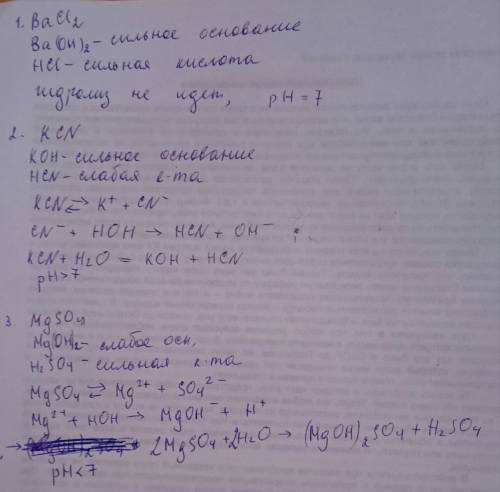 1. BaCl₂
Ba(OH)₂ - сильное основание
HCl - сильная кислота
гидролиз не идет, pH = 7
2. KCN
KOH - сильное основание
HCN - слабая к-та
KCN ⇄ K⁺ + CN⁻
CN⁻ + HOH → HCN + OH⁻
KCN + H₂O = KOH + HCN
pH > 7
3. MgSO₄
Mg(OH)₂ - слабое осн,
H₂SO₄ - сильная к-та
MgSO₄ ⇄ Mg²⁺ + SO₄²⁻
Mg²⁺ + HOH → MgOH⁻ + H⁺
→ 2MgSO₄ + 2H₂O → (MgOH)₂SO₄ + H₂SO₄
pH < 7